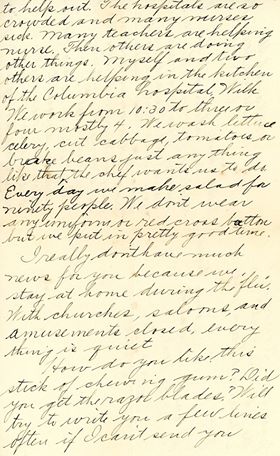 to help out. The hospitals are so
crowded and many nurses
sick. Many teachers are helping
nurse. Then others are doing
other things. Myself and two
others are helping in the kitchen
of the Columbia hospital Wilk
We work from 10:30 to three or
four mostly 4. We wash lettuce
celery, cut cabbage, tomatoes or
break beans just any thing
like that the chef wants us to do
Every day we make salad for
ninety people. We don't wear
any uniform or red cross button
but we put in pretty good time.
I really don't have much
news for you because we
stay at home during the flu.
With churches, saloons, and
amusements closed, every
thing is quiet
How do you like this
stick of chewing gum? Did
you get the razor blades? Will
try to write you a few lines
often if I can't send you